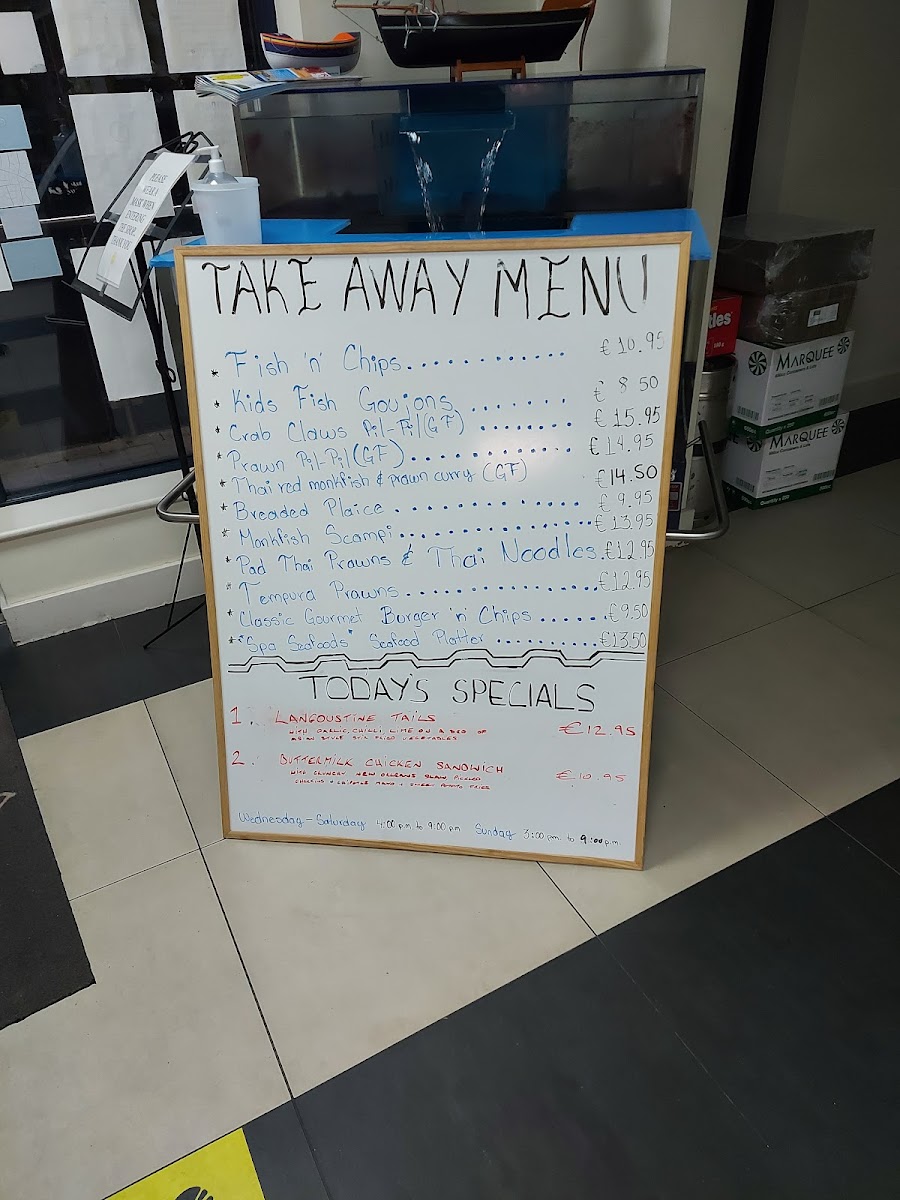 PLEASE
WEAR A
MASK WHEN
ENTERING
THE SHOP.
THANK YOU.
TAKE AWAY MENU
* Fish 'n' Chips............ €10.95
* Kids Fish Goujons....... € 8.50
* Crab Claws Pil-Pil(GF)........ €15.95
* Prawn Pil-Pil(GF)............ €14.95
* Thai red monkfish & prawn curry (GF) €14.50
* Breaded Plaice............ €9.95
* Monkfish Scampi............ €13.95
* Pad Thai Prawns & Thai Noodles. €12.95
* Tempura Prawns............ €12.95
* Classic Gourmet Burger 'n' Chips...... €9.50
* "Spa Seafoods" Seafood Platter......... €13.50
TODAY'S SPECIALS
1. LANGOUSTINE TAILS €12.95
WITH GARLIC, CHILLI, LIME ON A BED OF
ASIAN STYLE STIR FRIED VEGETABLES
2. BUTTERMILK CHICKEN SANDWICH €10.95
WITH CRUNCHY NEW ORLEANS SLAW PICKLED
GHERKINS + CHIPOTLE MAYO + SWEET POTATO FRIES
Wednesday - Saturday 4:00 p.m. to 9:00 p.m Sunday 3:00 p.m. to 9:00 p.m.
MARQUEE
MARQUEE